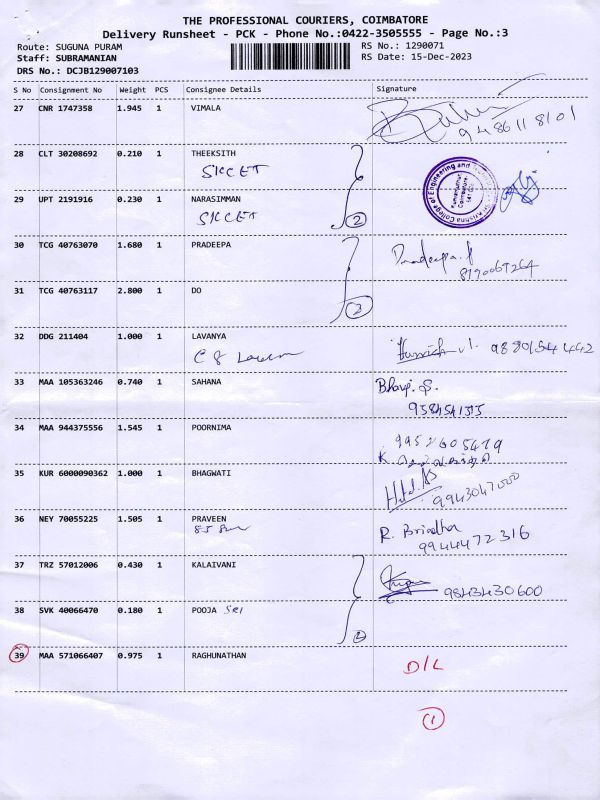 THE PROFESSIONAL COURIERS, COIMBATORE
Delivery Runsheet - PCK - Phone No.:0422-3505555 - Page No.:3
Route: SUGUNA PURAM
RS No.: 1290071
Staff: SUBRAMANIAN
RS Date: 15-Dec-2023
DRS No.: DCJB129007103
S No Consignment No Weight PCS Consignee Details Signature
27 CNR 1747358 1.945 1 VIMALA
9486118101
28 CLT 30208692 0.210 1 THEEKSITH
SKCET
29 UPT 2191916 0.230 1 NARASIMMAN
SKCET
2
30 TCG 40763070 1.680 1 PRADEEPA Pradeepa.
31 TCG 40763117 2.800 1 DO
32 DDG 211404 1.000 1 LAVANYA
33 MAA 105363246 0.740 1 SAHANA
34 MAA 944375556 1.545 1 POORNIMA
9952605419
K.
35 KUR 6000090362 1.000 1 BHAGWATI
36 NEY 70055225 1.505 1 PRAVEEN R.
9944472316
37 TRZ 57012006 0.430 1 KALAIVANI
9843430600
38 SVK 40066470 0.180 1 POOJA SRI
39 MAA 571066407 0.975 1 RAGHUNATHAN
D/L
1